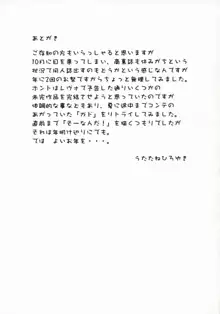 あとがき
ご存知の方もいらっしゃると思いますが
10月に目を患ってしまい、商業誌も休みがちという
状況で同人誌出すのもどうかという感じなんですが
年に2回のお祭ですからちょっと無理してみました。
ホントはレヴォで予告した通りいくつかの
未完作品を完結させようと思っていたのですが
体調的な事などもあり、夏に途中までコンテの
あがっていた「ガド」をリトライしてみました。
直前まで「そーなんだ!」を描くつもりでしたが
それは年明け辺りにでも。
では よいお年を・・・。
うたたねひろゆき